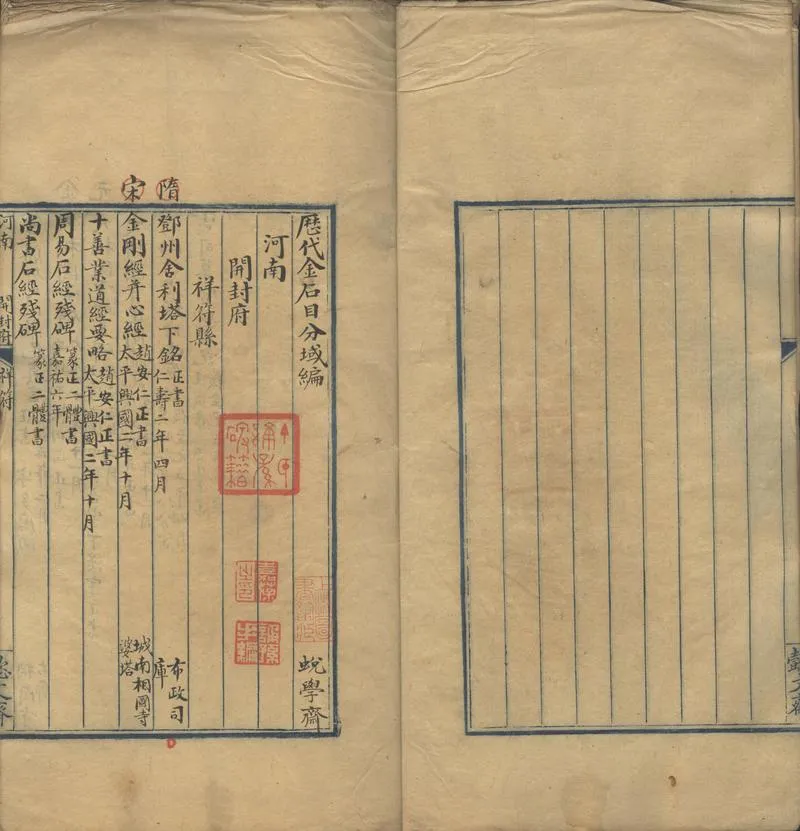 歷代金石目分域編
蛻學齋
河南
開封府
祥符縣
隋
鄧州舍利塔下銘 正書 仁壽二年四月
布政司庫
宋
金剛經并心經 趙安仁正書 太平興國二年十月
城南相國寺婆塔
十善業道經要略 趙安仁正書 太平興國二年十月
周易石經殘碑 篆正二體書 嘉祐六年
尚書石經殘碑 篆正二體書
河南 開封府 祥符